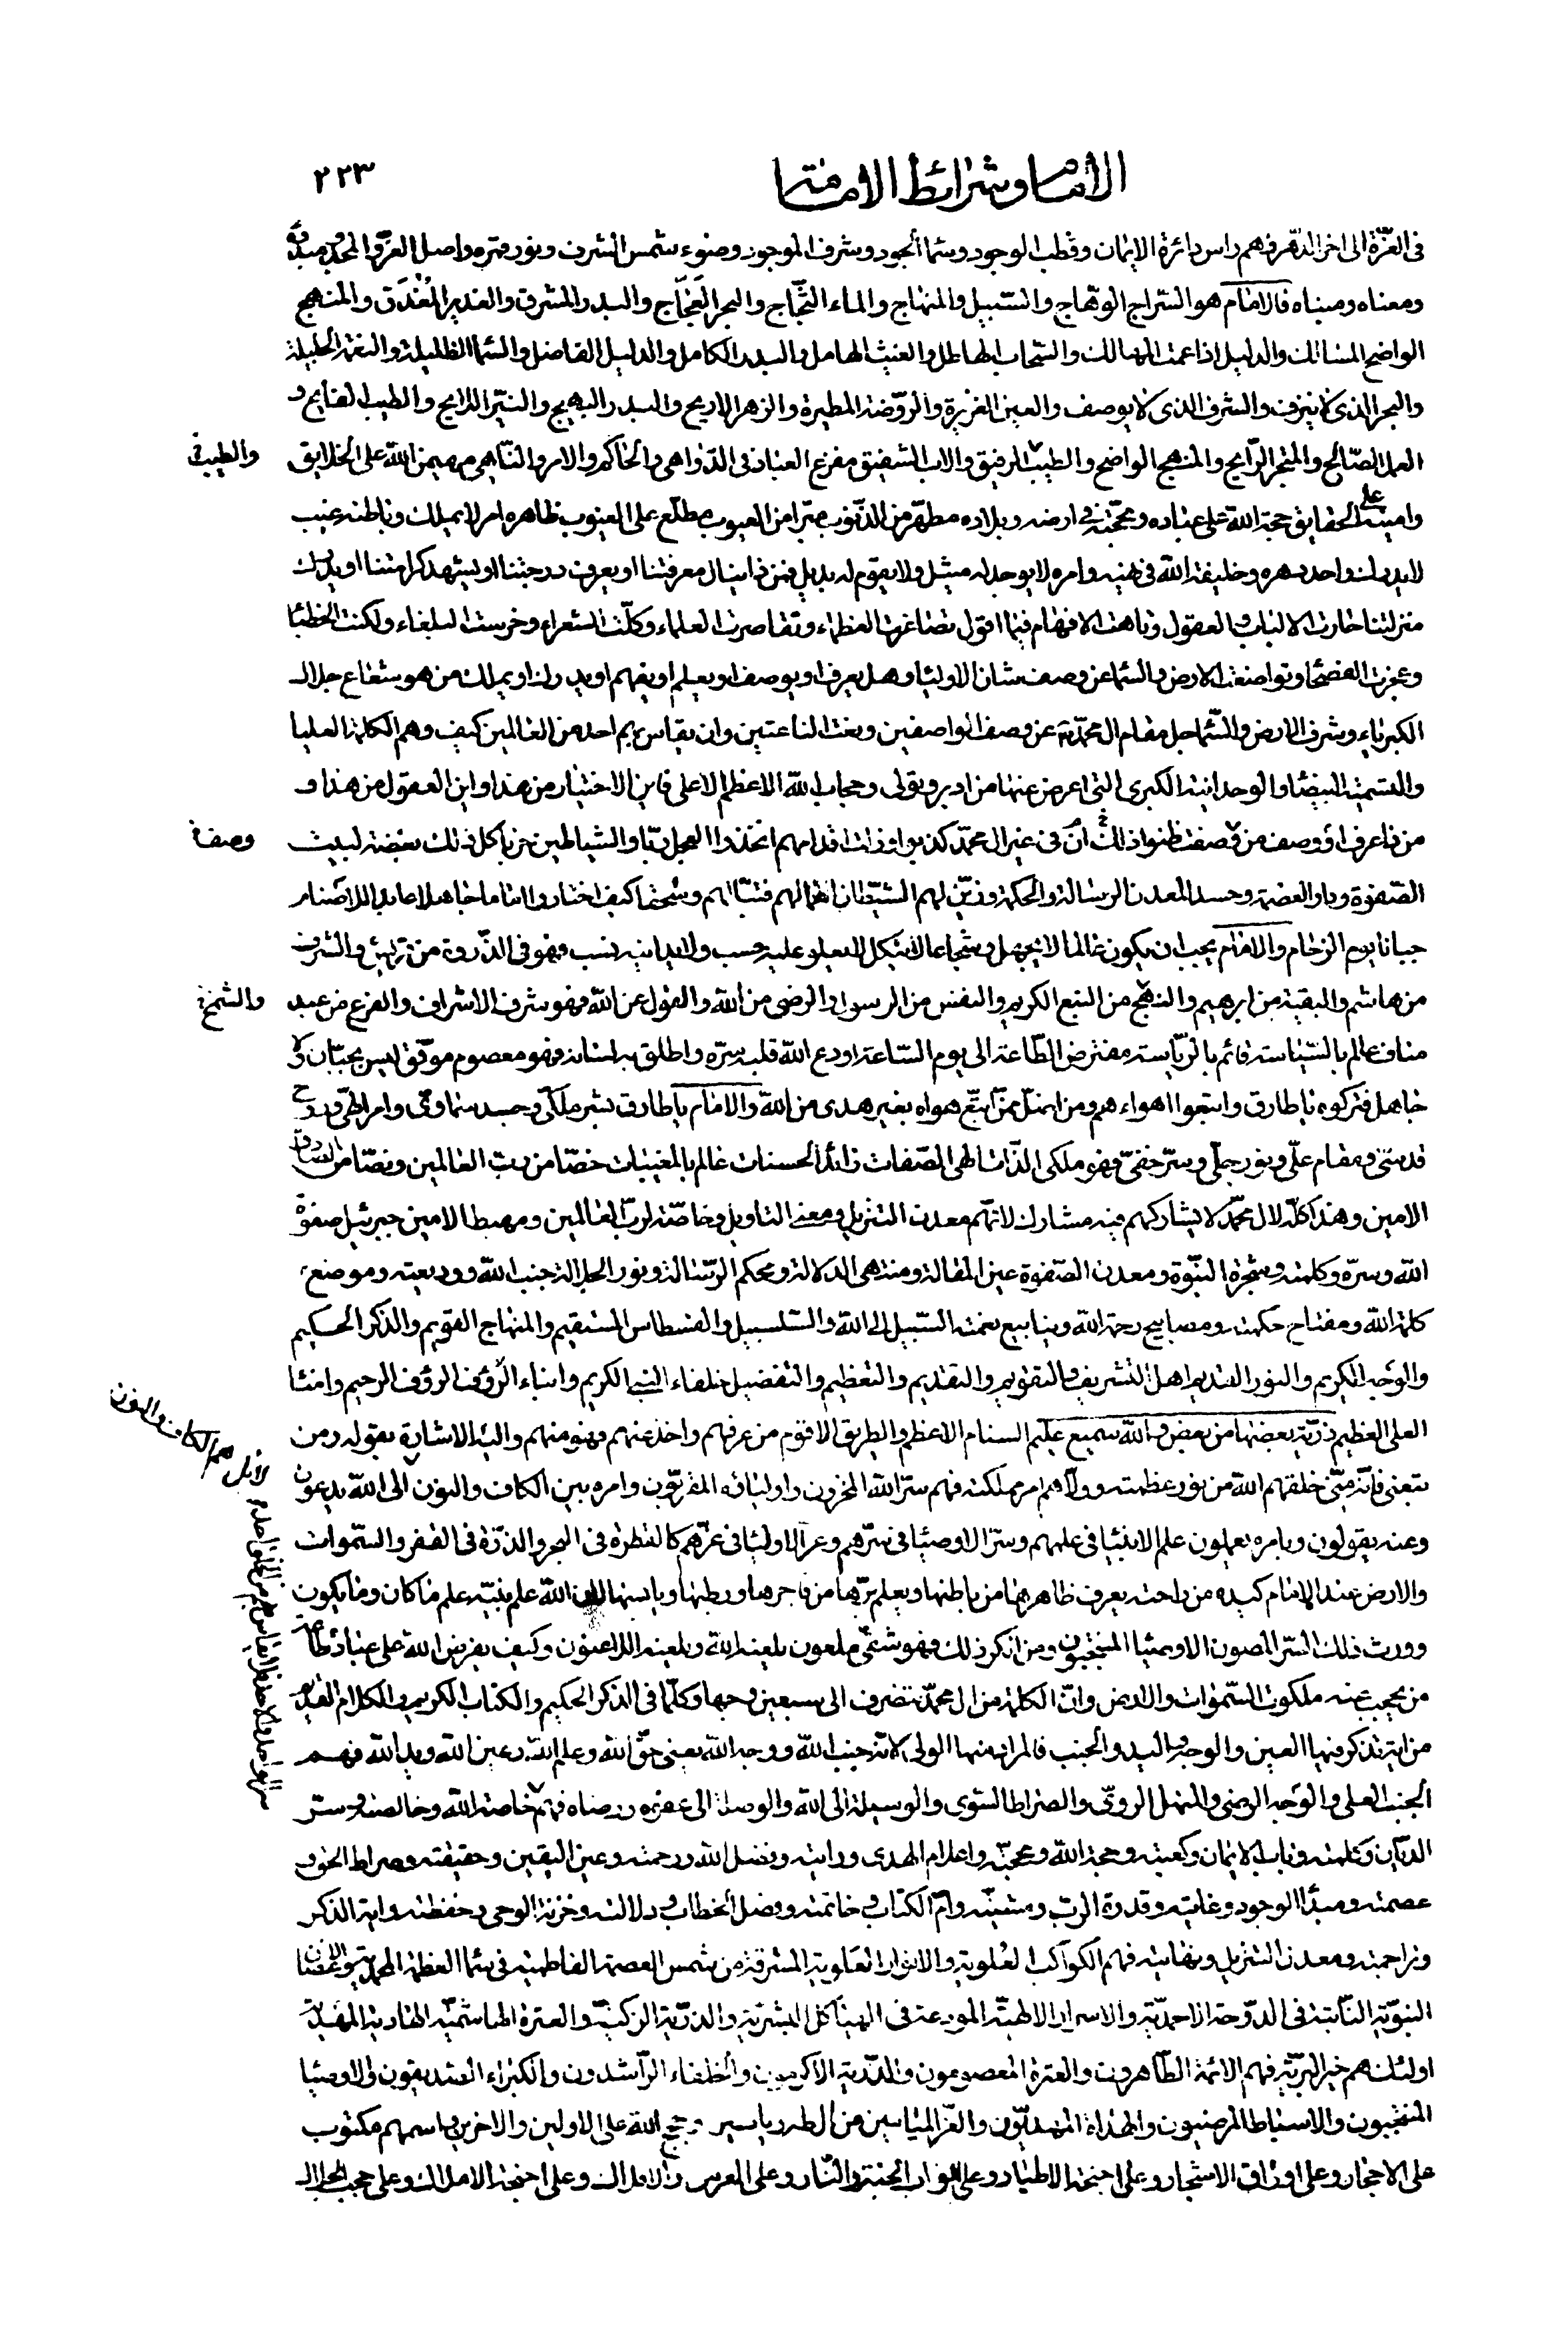 الامام وشرائط الامامة
٢٢٣
فى العزّة الى اخر الدّهر فهم راس دائرة الايمان وقطب الوجود وسماء الجود وشرف الموجود وضوء شمس الشرف ونور قمره واصل العزّ والمجد ومبدئه
ومعناه ومبناه فالامام هو السّراج الوهّاج والسّبيل والمنهاج والماء الثّجّاج والبحر العجّاج والبدر المشرق والغدير المغدق والمنهج
الواضح المسالك والدليل اذا عمت المهالك والسّحاب الهاطل والغيث الهامل والبدر الكامل والدليل الفاضل والسّماء الظليلة والنعمة الجليلة
والبحر الذى لا ينزف والشرف الذى لا يوصف والعين الغزيرة والرّوضة المطيرة والزهر الاريج والبدر البهيج والنيّر اللايح والطيب الفايح و
العمل الصّالح والمتجر الرّابح والمنهج الواضح والطبيب الرفيق والاب الشفيق مفزع العباد فى الدّواهى والحاكم والامر والنّاهى مهيمن الله على الخلايق
وامينه على الحقايق حجة الله على عباده ومحجّته فى ارضه وبلاده مطهّر من الذّنوب مبرّا من العيوب مطّلع على الغيوب ظاهره امر لا يملك وباطنه غيب
لا يدرك واحد دهره وخليفة الله فى نهيه وامره لا يوجد له مثيل ولا يقوم له بديل فمن ذا ينال معرفتنا او يعرف درجتنا او يشهد كرامتنا او يدرك
منزلتنا حارت الالباب والعقول وتاهت الافهام فيما اقول تصاغرت العظماء وتقاصرت العلماء وكلّت الشعراء وخرست البلغاء ولكنت الخطباء
وعجزت الفصحاء وتواضعت الارض والسّماء عن وصف شان الاولياء وهل يعرف او يوصف او يعلم او يفهم او يدرك او يملك من هو شعاع جلال
الكبرياء وشرف الارض والسّماء جل مقام ال محمّد عن وصف الواصفين ونعت الناعتين وان يقاس بهم احد من العالمين كيف وهم الكلمة العليا
والتسمية البيضاء والوحدانية الكبرى التى اعرض عنها من ادبر وتولى وحجاب الله الاعظم الاعلى فاين الاختيار من هذا واين العقول من هذا و
من ذا عرف او وصف من وصفت ظنوا ذلك ان فى غير ال محمّد كذبوا وزلت اقدامهم اتخذوا العجل ربّا والشياطين حزبا كل ذلك بغضة لبيت
الصّفوة ودار العصمة وحسدا لمعدن الرسالة والحكمة وزيّن لهم الشيطان اعمالهم فتبّا لهم وسحقا كيف اختاروا اماما جاهلا عابدا للاصنام
جبانا يوم الزحام والامام يجب ان يكون عالما لا يجهل وشجاعا لا ينكل لا يعلو عليه حسب ولا يدانيه نسب فهو فى الذّروة من قريش والشرف
من هاشم والبقية من ابرهيم والنهج من النبع الكريم والنفس من الرسول والرضى من الله والقول عن الله فهو شرف الاشراف والفرع من عبد
مناف عالم بالسّياسة قائم بالرّياسة مفترض الطّاعة الى يوم السّاعة اودع الله قلبه سرّه واطلق به لسانه فهو معصوم موفّق ليس بجبان ولا
جاهل فتركوه يا طارق واتبعوا اهواءهم ومن اضلّ ممّن اتبع هواه بغير هدى من الله والامام يا طارق بشر ملكىّ وجسد سماوىّ وامر الهىّ وروح
قدسىّ ومقام علىّ ونور جلىّ وسرّ خفىّ فهو ملكى الذّات الهى الصّفات زائد الحسنات عالم بالمغيبات خصّا من ربّ العالمين ونصّا من الصادق
الامين وهذا كلّه لال محمّد لا يشاركهم فيه مشارك لانّهم معدن التنزيل ومعنى التاويل وخاصّة الربّ العالمين ومهبط الامين جبرئيل صفوة
الله وسرّه وكلمته وشجرة النبّوة ومعدن الصّفوة عين المقالة ومنتهى الدلالة ومحكم الرّسالة ونور الجلالة جنب الله ووديعته وموضع
كلمة الله ومفتاح حكمته ومصابيح رحمة الله وينابيع نعمته السّبيل الى الله والسّلسبيل والقسطاس المستقيم والمنهاج القويم والذكر الحكيم
والوجه الكريم والنور القديم اهل التشريف والتقويم والتقديم والتعظيم والتفضيل خلفاء النبى الكريم وابناء الرّؤف الرؤف الرحيم وامناء
العلى العظيم ذريّة بعضها من بعض والله سميع عليم السنام الاعظم والطريق الاقوم من عرفهم واخذ عنهم فهو منهم واليه الاشارة بقوله ومن
تبعنى فانّه منّى خلقهم الله من نور عظمته وولّاهم امر مملكته فهم سرّ الله المخزون واوليائه المقرّبون وامره بين الكاف والنون الى الله يدعون
وعنه يقولون وبامره يعملون علم الانبياء فى علمهم وسرّ الاوصياء فى سرّهم وعزّ الاولياء فى عزّهم كالقطرة فى البحر والذرّة فى القفر والسّموات
والارض عند الامام كيده من راحته يعرف ظاهرها من باطنها ويعلم برّها من فاجرها ورطبها ويابسها لان الله علم نبيّه علم ما كان وما يكون
وورث ذلك السّر المصون الاوصياء المنتجبون ومن انكر ذلك فهو شقىّ ملعون يلعنه الله ويلعنه اللاعنون وكيف يفرض الله على عباده طاعة
من يحجب عنه ملكوت السّموات والارض وانّ الكلمة من ال محمّد تنصرف الى سبعين وجها وكلّما فى الذكر الحكيم والكتاب الكريم والكلام القديم
من اية تذكر فيها العين والوجه واليد والجنب فالمراد منها الولى لانّه جنب الله ووجه الله يعنى حقّ الله وعلم الله وعين الله ويد الله فهم
الجنب العلى والوجه الرضى والمنهل الروىّ والصّراط السّوى والوسيلة الى الله والوصلة الى عفوه ورضاه فهم خاصة الله وخالصته وسرّ
الديّان وكلمته وباب الايمان وكعبته وحجة الله ومحجّته واعلام الهدى ورايته وفضل الله ورحمته وعين اليقين وحقيقته وصراط الحق و
عصمته ومبدأ الوجود وغايته وقدرة الربّ ومشيّته وامّ الكتاب وخاتمته وفصل الخطاب ودلالته وخزنة الوحى وحفظته واية الذكر
وتراجمته ومعدن التنزيل ونهايته فهم الكواكب العلوية والانوار العلوية المشرقة من شمس العصمة الفاطمية فى سماء العظمة المحمّدية والاغصان
النبويّة النّابتة فى الدوّحة الاحمديّة والاسرار الالهيّة المودعة فى الهياكل البشريّة والذريّة الزكيّة والعترة الهاشميّة الهادية المهديّة
اولئك هم خير البريّة فهم الائمة الطّاهرون والعترة المعصومون والذّرّية الاكرمون والخلفاء الرّاشدون والكبراء الصديقون والاوصياء
المنتجبون والاسباط المرضيون والهداة المهديّون والغرّ الميامين من ال طه ويس وحجج الله على الاولين والاخرين اسمهم مكتوب
على الاحجار وعلى اوراق الاشجار وعلى اجنحة الاطيار وعلى ابواب الجنة والنّار وعلى العرش والافلاك وعلى اجنحة الاملاك وعلى حجب الجلال
والطيب
وصف
والشمخ
لا بل هم الكاف والنون